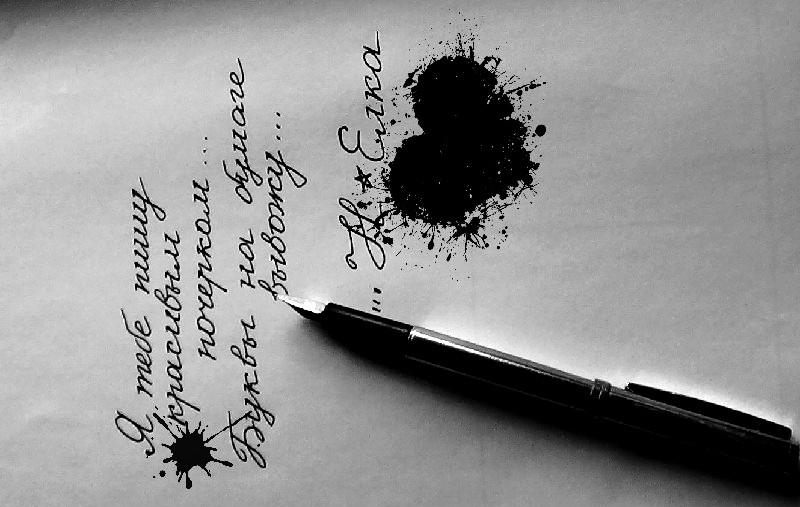 Я тебе пишу
красивым
почерком...
Буквы на бумаге
вывожу...
... Н★Елка